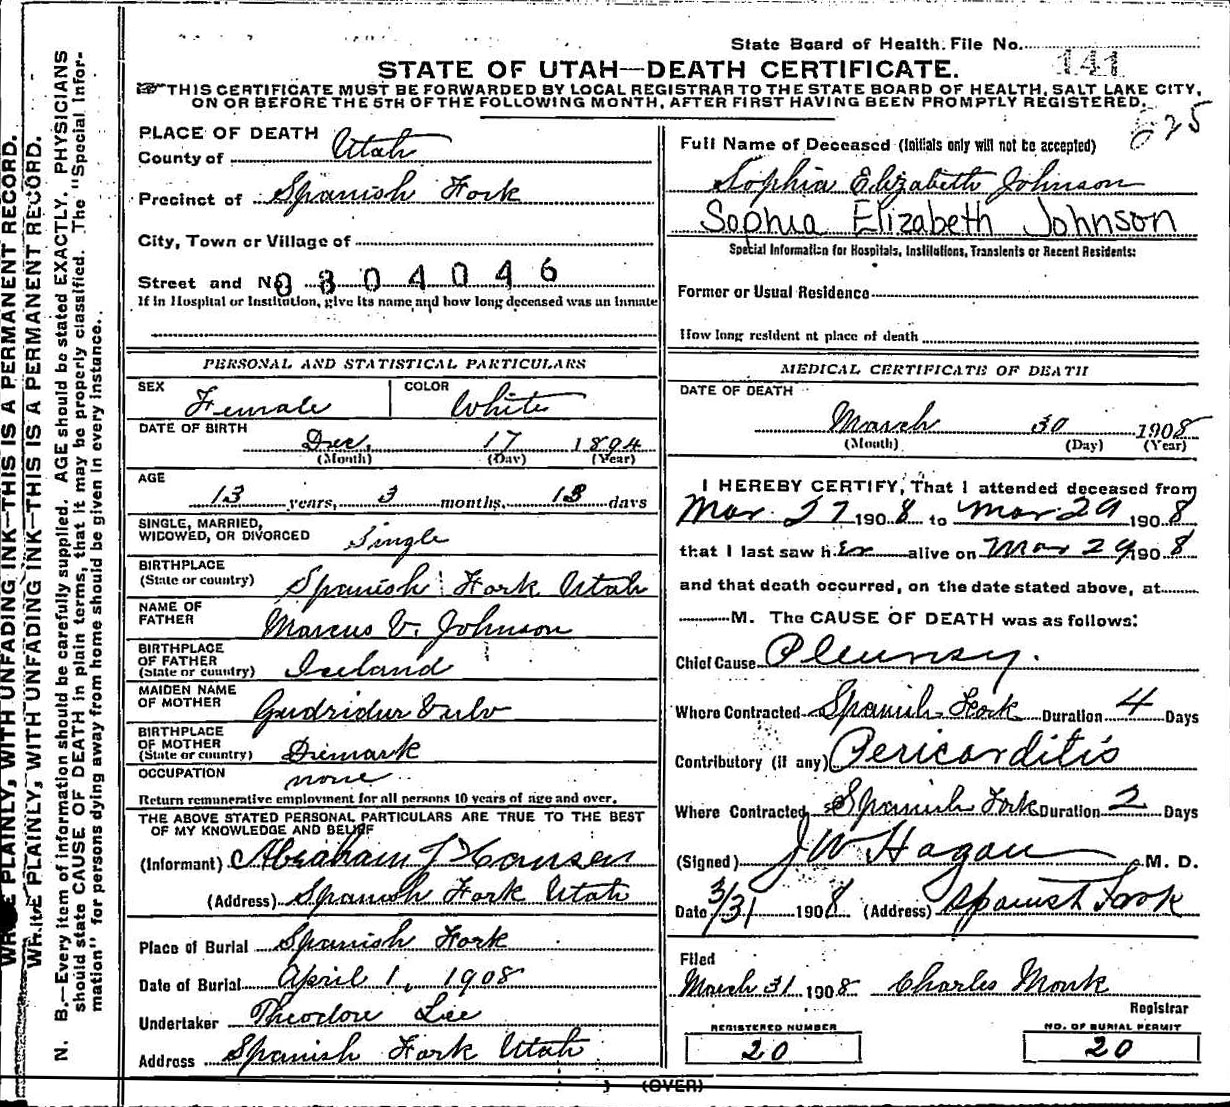 WRITE PLAINLY, WITH UNFADING INK—THIS IS A PERMANENT RECORD.
WRITE PLAINLY, WITH UNFADING INK—THIS IS A PERMANENT RECORD.
N. B.—Every item of information should be carefully supplied. AGE should be stated EXACTLY. PHYSICIANS
should state CAUSE OF DEATH in plain terms, that it may be properly classified. The "Special Infor-
mation" for persons dying away from home should be given in every instance.
State Board of Health. File No. 141
STATE OF UTAH—DEATH CERTIFICATE.
THIS CERTIFICATE MUST BE FORWARDED BY LOCAL REGISTRAR TO THE STATE BOARD OF HEALTH, SALT LAKE CITY,
ON OR BEFORE THE 5TH OF THE FOLLOWING MONTH, AFTER FIRST HAVING BEEN PROMPTLY REGISTERED.
PLACE OF DEATH
County of Utah
Precinct of Spanish Fork
City, Town or Village of
Street and No 0304046
If in Hospital or Institution, give its name and how long deceased was an inmate
PERSONAL AND STATISTICAL PARTICULARS
SEX Female COLOR White
DATE OF BIRTH Dec. 17 1894
(Month) (Day) (Year)
AGE 13 years, 3 months, 13 days
SINGLE, MARRIED,
WIDOWED, OR DIVORCED Single
BIRTHPLACE
(State or country) Spanish Fork Utah
NAME OF
FATHER Marcus V. Johnson
BIRTHPLACE
OF FATHER
(State or country) Iceland
MAIDEN NAME
OF MOTHER Gudridur
BIRTHPLACE
OF MOTHER
(State or country) Denmark
OCCUPATION none
Return remunerative employment for all persons 10 years of age and over.
THE ABOVE STATED PERSONAL PARTICULARS ARE TRUE TO THE BEST
OF MY KNOWLEDGE AND BELIEF
(Informant) Abraham J Hansen
(Address) Spanish Fork Utah
Place of Burial Spanish Fork
Date of Burial April 1, 1908
Undertaker Theodore Lee
Address Spanish Fork Utah
625
Full Name of Deceased (Initials only will not be accepted)
Sophia Elizabeth Johnson
Sophia Elizabeth Johnson
Special Information for Hospitals, Institutions, Transients or Recent Residents:
Former or Usual Residence
How long resident at place of death
MEDICAL CERTIFICATE OF DEATH
DATE OF DEATH
March 30 1908
(Month) (Day) (Year)
I HEREBY CERTIFY, That I attended deceased from
Mar. 27 1908 to Mar 29 1908
that I last saw h er alive on Mar 29 1908
and that death occurred, on the date stated above, at
M. The CAUSE OF DEATH was as follows:
Chief Cause Pleurisy.
Where Contracted Spanish Fork Duration 4 Days
Contributory (if any) Pericarditis
Where Contracted Spanish Fork Duration 2 Days
(Signed) J W Hagan M. D.
Date 3/31 1908 (Address) Spanish Fork
Filed
March 31 1908 Charles Monk
Registrar
REGISTERED NUMBER
20
NO. OF BURIAL PERMIT
20
(OVER)